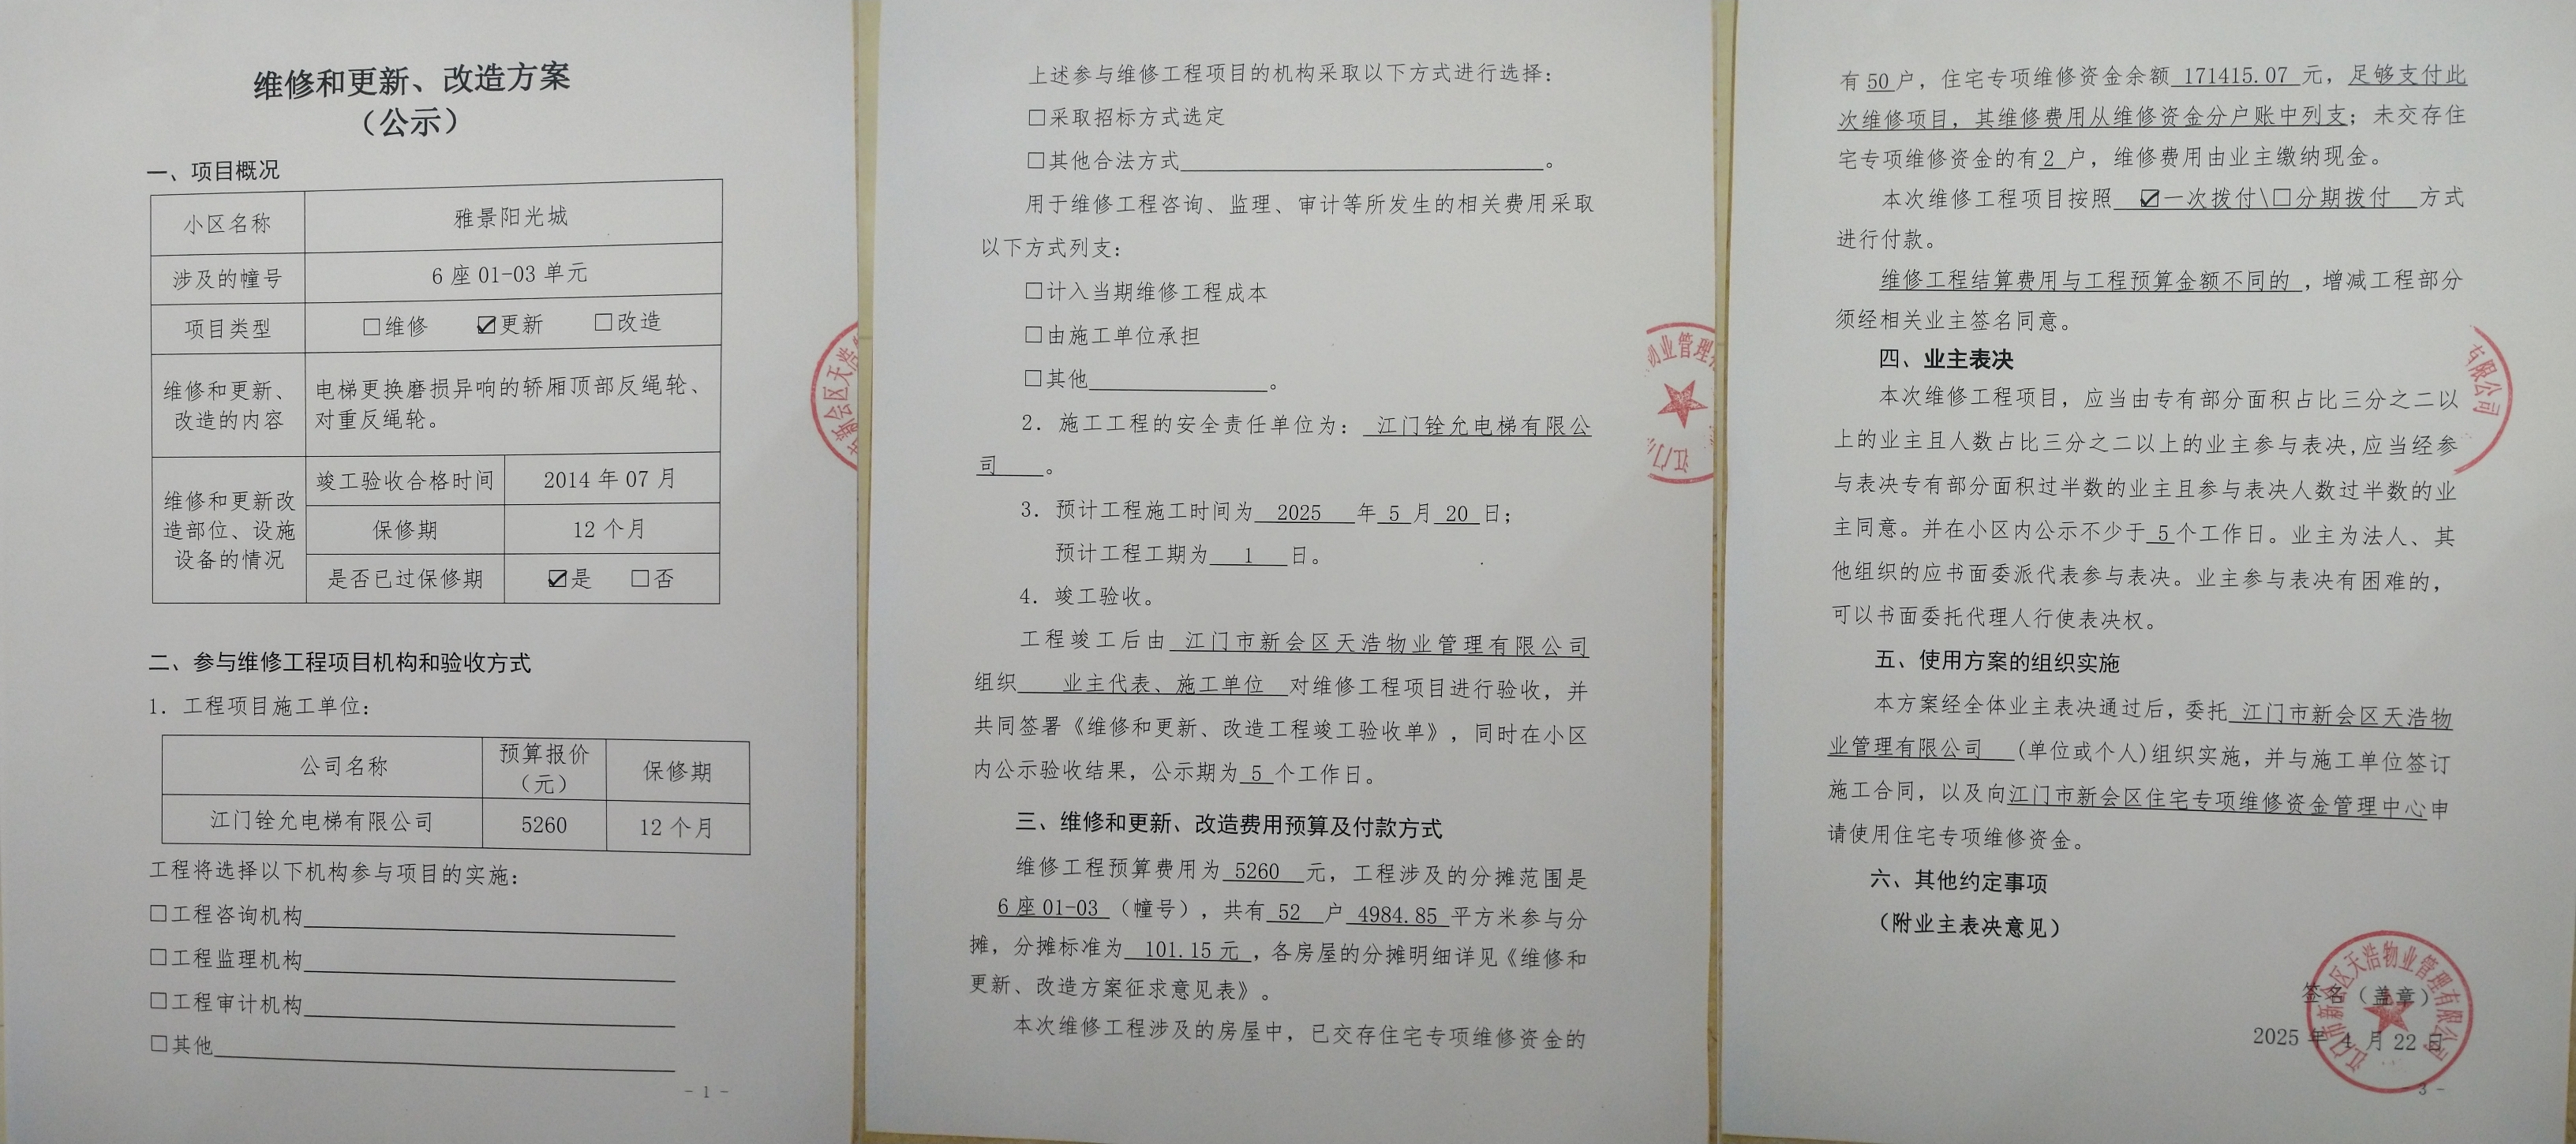 维修和更新、改造方案
（公示）
一、项目概况
小区名称 雅景阳光城
涉及的幢号 6座01-03单元
项目类型 □维修 ☑更新 □改造
维修和更新、
改造的内容
电梯更换磨损异响的轿厢顶部反绳轮、
对重反绳轮。
维修和更新改
造部位、设施
设备的情况
竣工验收合格时间 2014年07月
保修期 12个月
是否已过保修期 ☑是 □否
二、参与维修工程项目机构和验收方式
1. 工程项目施工单位：
公司名称 预算报价
（元） 保修期
江门铨允电梯有限公司 5260 12个月
工程将选择以下机构参与项目的实施：
□工程咨询机构
□工程监理机构
□工程审计机构
□其他
- 1 -
上述参与维修工程项目的机构采取以下方式进行选择：
□采取招标方式选定
□其他合法方式 。
用于维修工程咨询、监理、审计等所发生的相关费用采取
以下方式列支：
□计入当期维修工程成本
□由施工单位承担
□其他 。
2. 施工工程的安全责任单位为： 江门铨允电梯有限公
司 。
3. 预计工程施工时间为 2025 年 5 月 20 日；
预计工程工期为 1 日。
4. 竣工验收。
工程竣工后由 江门市新会区天浩物业管理有限公司
组织 业主代表、施工单位 对维修工程项目进行验收，并
共同签署《维修和更新、改造工程竣工验收单》，同时在小区
内公示验收结果，公示期为 5 个工作日。
三、维修和更新、改造费用预算及付款方式
维修工程预算费用为 5260 元，工程涉及的分摊范围是
6座01-03 （幢号），共有 52 户 4984.85 平方米参与分
摊，分摊标准为 101.15元 ，各房屋的分摊明细详见《维修和
更新、改造方案征求意见表》。
本次维修工程涉及的房屋中，已交存住宅专项维修资金的
有 50 户，住宅专项维修资金余额 171415.07 元，足够支付此
次维修项目，其维修费用从维修资金分户账中列支；未交存住
宅专项维修资金的有 2 户，维修费用由业主缴纳现金。
本次维修工程项目按照 ☑一次拨付\□分期拨付 方式
进行付款。
维修工程结算费用与工程预算金额不同的，增减工程部分
须经相关业主签名同意。
四、业主表决
本次维修工程项目，应当由专有部分面积占比三分之二以
上的业主且人数占比三分之二以上的业主参与表决,应当经参
与表决专有部分面积过半数的业主且参与表决人数过半数的业
主同意。并在小区内公示不少于 5 个工作日。业主为法人、其
他组织的应书面委派代表参与表决。业主参与表决有困难的，
可以书面委托代理人行使表决权。
五、使用方案的组织实施
本方案经全体业主表决通过后，委托 江门市新会区天浩物
业管理有限公司 (单位或个人)组织实施，并与施工单位签订
施工合同，以及向江门市新会区住宅专项维修资金管理中心申
请使用住宅专项维修资金。
六、其他约定事项
（附业主表决意见）
签名（盖章）
2025 年 4 月 22 日
江门市新会区天浩物业管理有限公司
3 -